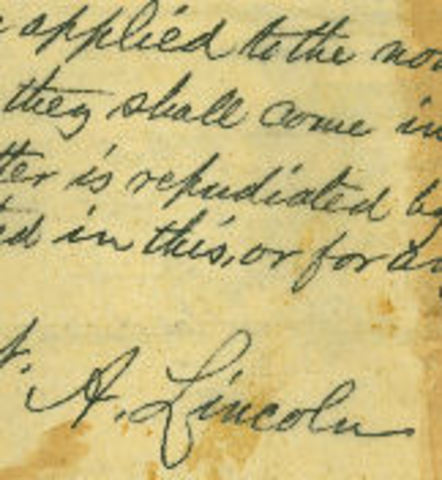 applied to the
they shall come in
is repudiated by
in this, or for
A. Lincoln